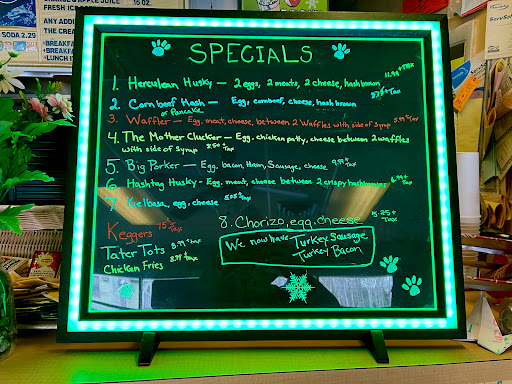 & APPLE JUICE 16 OZ.
FRESH ICE
ANY ADDI
SODA 2.29
THE CREA
•BREAKFA
•BREAKF
•LUNCH I
SPECIALS
1. Herculean Husky — 2 eggs, 2 meats, 2 cheese, hash brown 11.99 +TAX
2. Corn beef Hash — Egg, cornbeef, cheese, hash brown
or Pancake
3. Waffler — Egg, meat, cheese, between 2 Waffles with side of syrup 5.99 + Tax
4. The Mother Clucker — Egg, chicken patty, cheese between 2 waffles
with side of syrup 8.50 + Tax
5. Big Porker — Egg, bacon, Ham, Sausage, cheese 9.99 + Tax
6. Hashtag Husky - Egg, meat, cheese between 2 crispy hashbrowns 6.99 + Tax
7. Kielbasa, egg, cheese + Tax
8. Chorizo, egg, cheese + Tax
Keggers + Tax
Tater Tots 8.99 + Tax
Chicken Fries 8.99 + Tax
We now have Turkey Sausage
Turkey Bacon
ServSaf